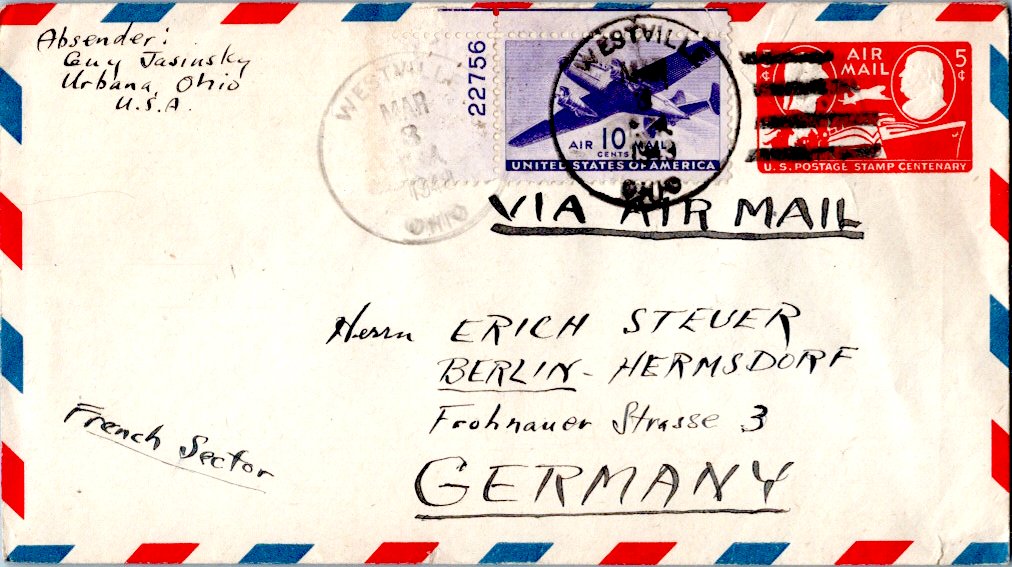 Absender:
Guy Jasinsky
Urbana, Ohio
U.S.A.
WESTVILLE
MAR
8
1949
OHIO
22756
AIR 10 MAIL
CENTS
UNITED STATES OF AMERICA
WESTVILLE
1949
OHIO
5¢ AIR MAIL 5¢
U.S. POSTAGE STAMP CENTENARY
VIA AIR MAIL
Herrn ERICH STEUER
BERLIN-HERMSDORF
Frohnauer Strasse 3
French Sector
GERMANY